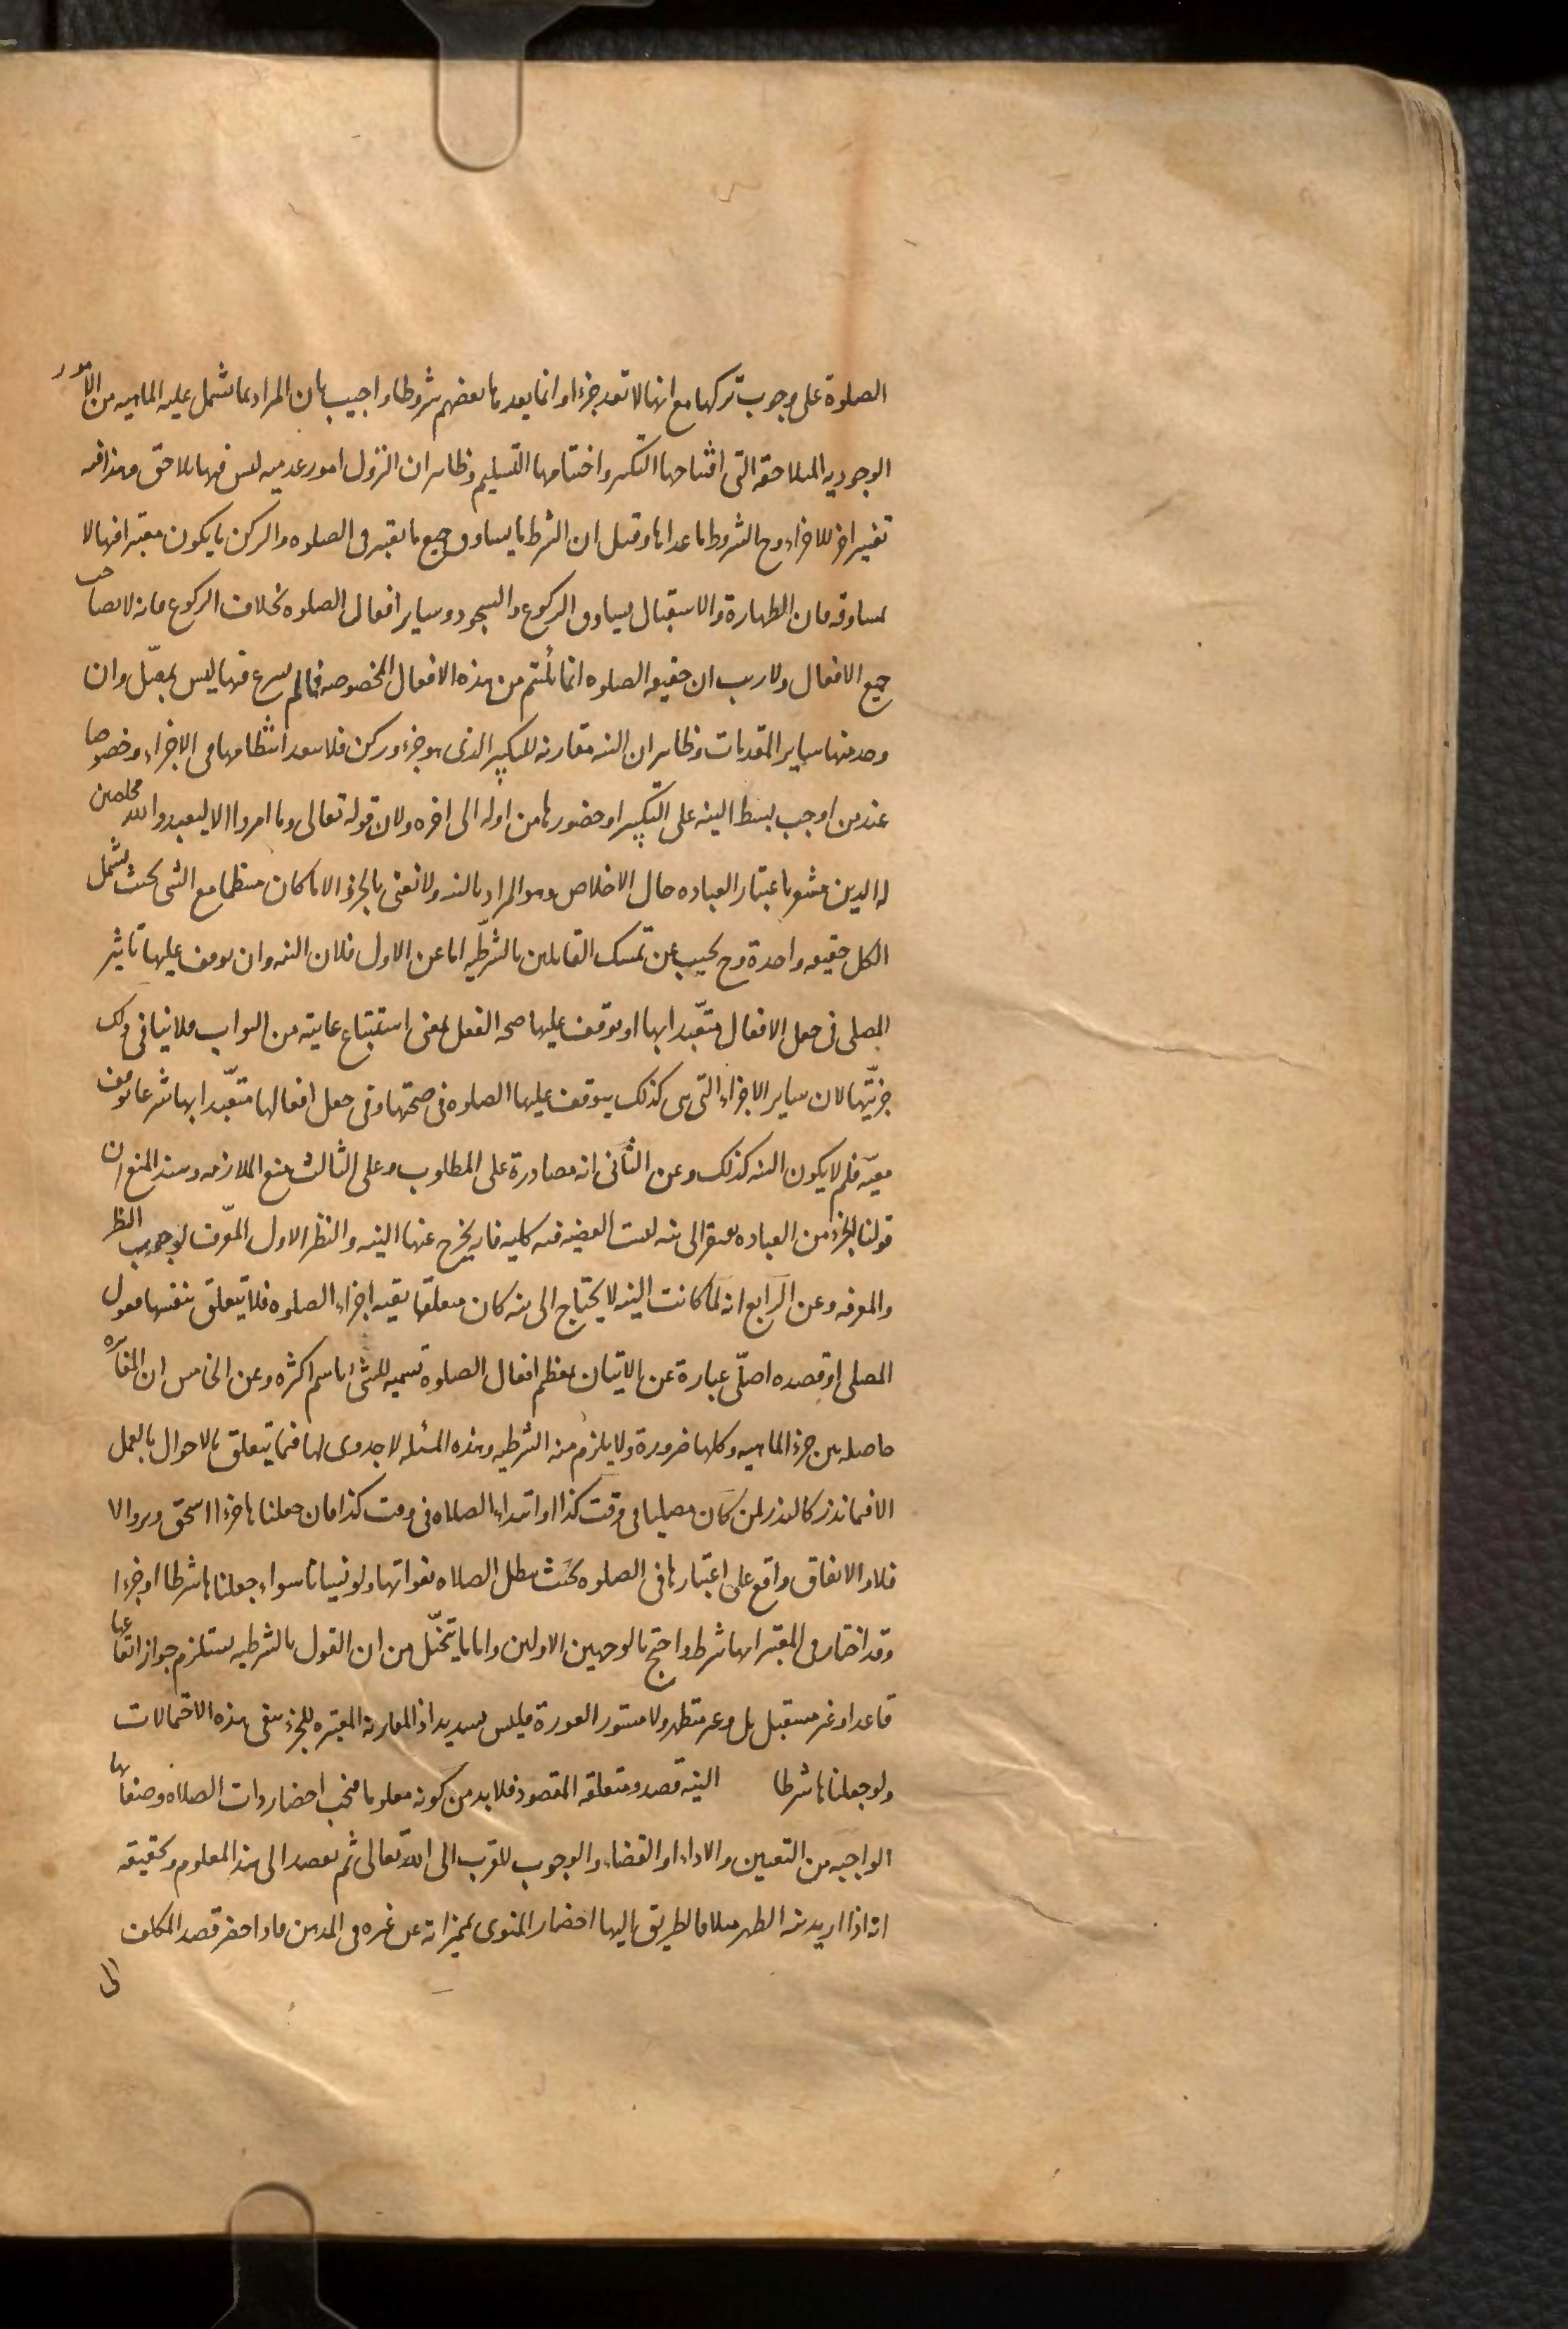 الصلوة على وجوب تركها مع انها لا تعد جزءا وانما يعدها بعضهم شروطا واجيب بان المراد بما تشمل عليه الماهيه من الامور
الوجوديه المتلاحقه التى افتتاحها التكبير واختتامها التسليم وظاهر ان التروك امور عدميه ليس فيها تلاحق وهذا فيه
تفسير اخر للاجزاء وح الشروط ما عداها وقيل ان الشرط ما يساوق جميع ما يعتبر فى الصلوه والركن ما يكون معتبرا فيها لا
بمساوقه فان الطهارة والاستقبال يساوق الركوع والسجود وساير افعال الصلوه بخلاف الركوع فانه لا يصاحب
جميع الافعال ولا ريب ان حقيقه الصلوه انما تلتئم من هذه الافعال المخصوصه فما لم يشرع فيها ليس بمصلّ وان
وجد منها ساير المقدمات وظاهر ان النيه مقارنه للتكبير الذى هو جزء وركن فلا يبعد انتظامها فى الاجزاء وخصوصا
عند من اوجب بسط النيه على التكبير او حضورها من اوله الى اخره ولان قوله تعالى وما امروا الا ليعبدوا الله مخلصين
له الدين مشعر باعتبار العباده حال الاخلاص وهو المراد بالنيه ولا نعنى بالجزء الا ما كان منتظما مع الشى بحيث يشمل
الكل حقيقه واحدة وح يجيب عن تمسك القايلين بالشرطيّه اما عن الاول فلان النيه وان توقف عليها تاثير
المصلى فى جعل الافعال متعبّدا بها او توقف عليها صحه الفعل بمعنى استتباع غايته من الثواب فلا ينافى ذلك
جزئيّتها لان ساير الاجزاء التى هى كذلك يتوقف عليها الصلوه فى صحتها وفى جعل افعالها متعبّدا بها شرعا توقف
معيّه فلم لا يكون النيه كذلك وعن الثانى انه مصادرة على المطلوب وعلى الثالث منع الملازمه وسند المنع ان
قولنا الجزء من العباده يفتقر الى نيه ليست القضيه فيه كليه فانه يخرج عنها النيه والنظر الاول المعرّف لوجوب النظر
والمعرفه وعن الرابع انه لما كانت النيه لا يحتاج الى نيه كان متعلقها بقيه اجزاء الصلوه فلا يتعلق بنفسها فقول
المصلى او قصده اصلّى عبارة عن الاتيان بمعظم افعال الصلوة تسميه للشئ باسم اكثره وعن الخامس ان المغايره
حاصله بين جزء الماهيه وكلها ضرورة ولا يلزم منه الشرطيه وهذه المسئله لا جدوى لها فيما يتعلق بالاحوال بالعمل
الا فيما ندر كالنذر لمن كان مصليا فى وقت كذا او ابتداء الصلاه فى وقت كذا فان جعلناها جزءا استحق وبر والا
فلا والاتفاق واقع على اعتبارها فى الصلوه بحيث تبطل الصلاه بفواتها ولو نسيانا سواء جعلناها شرطا او جزءا
وقد اختار فى المعتبر انها شرط واحتج بالوجهين الاولين واما ما يتخيّل من ان القول بالشرطيه يستلزم جواز ايقاعها
قاعدا وغير مستقبل بل وغير متطهر ولا مستور العورة فليس بسديد اذ المقارنه المعتبره للجزء تنفى هذه الاحتمالات
ولو جعلناها شرطا النيه قصد ومتعلقه المقصود فلا بد من كونه معلوما فيجب احضار ذات الصلاه وصفاتها
الواجبه من التعيين والاداء او القضاء والوجوب للتقرب الى الله تعالى ثم يقصد الى هذا المعلوم وتحقيقه
انه اذا اريد نيه الظهر مثلا فالطريق اليها احضار المنوى بمميزاته عن غيره فى الذهن فاذا حضر قصد المكلف
الى